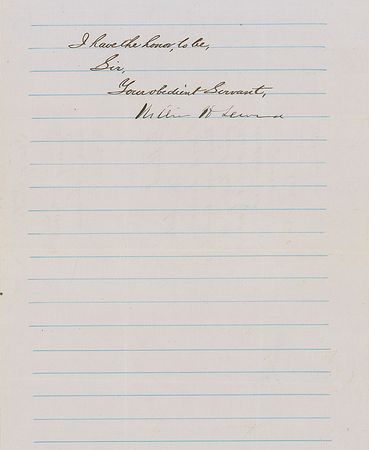 I have the honor, to be,
Sir,
Your obedient Servant,
William H Seward